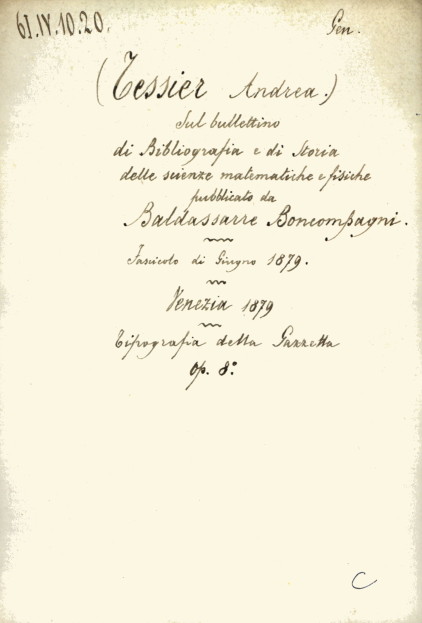 61.IV.10.20.
Gen.
(Tessier Andrea.)
Sul bullettino
di Bibliografia e di Storia
delle scienze matematiche e fisiche
pubblicato da
Baldassarre Boncompagni.
Fascicolo di Giugno 1879.
Venezia 1879
Tipografia della Gazzetta
op. 8°.
C